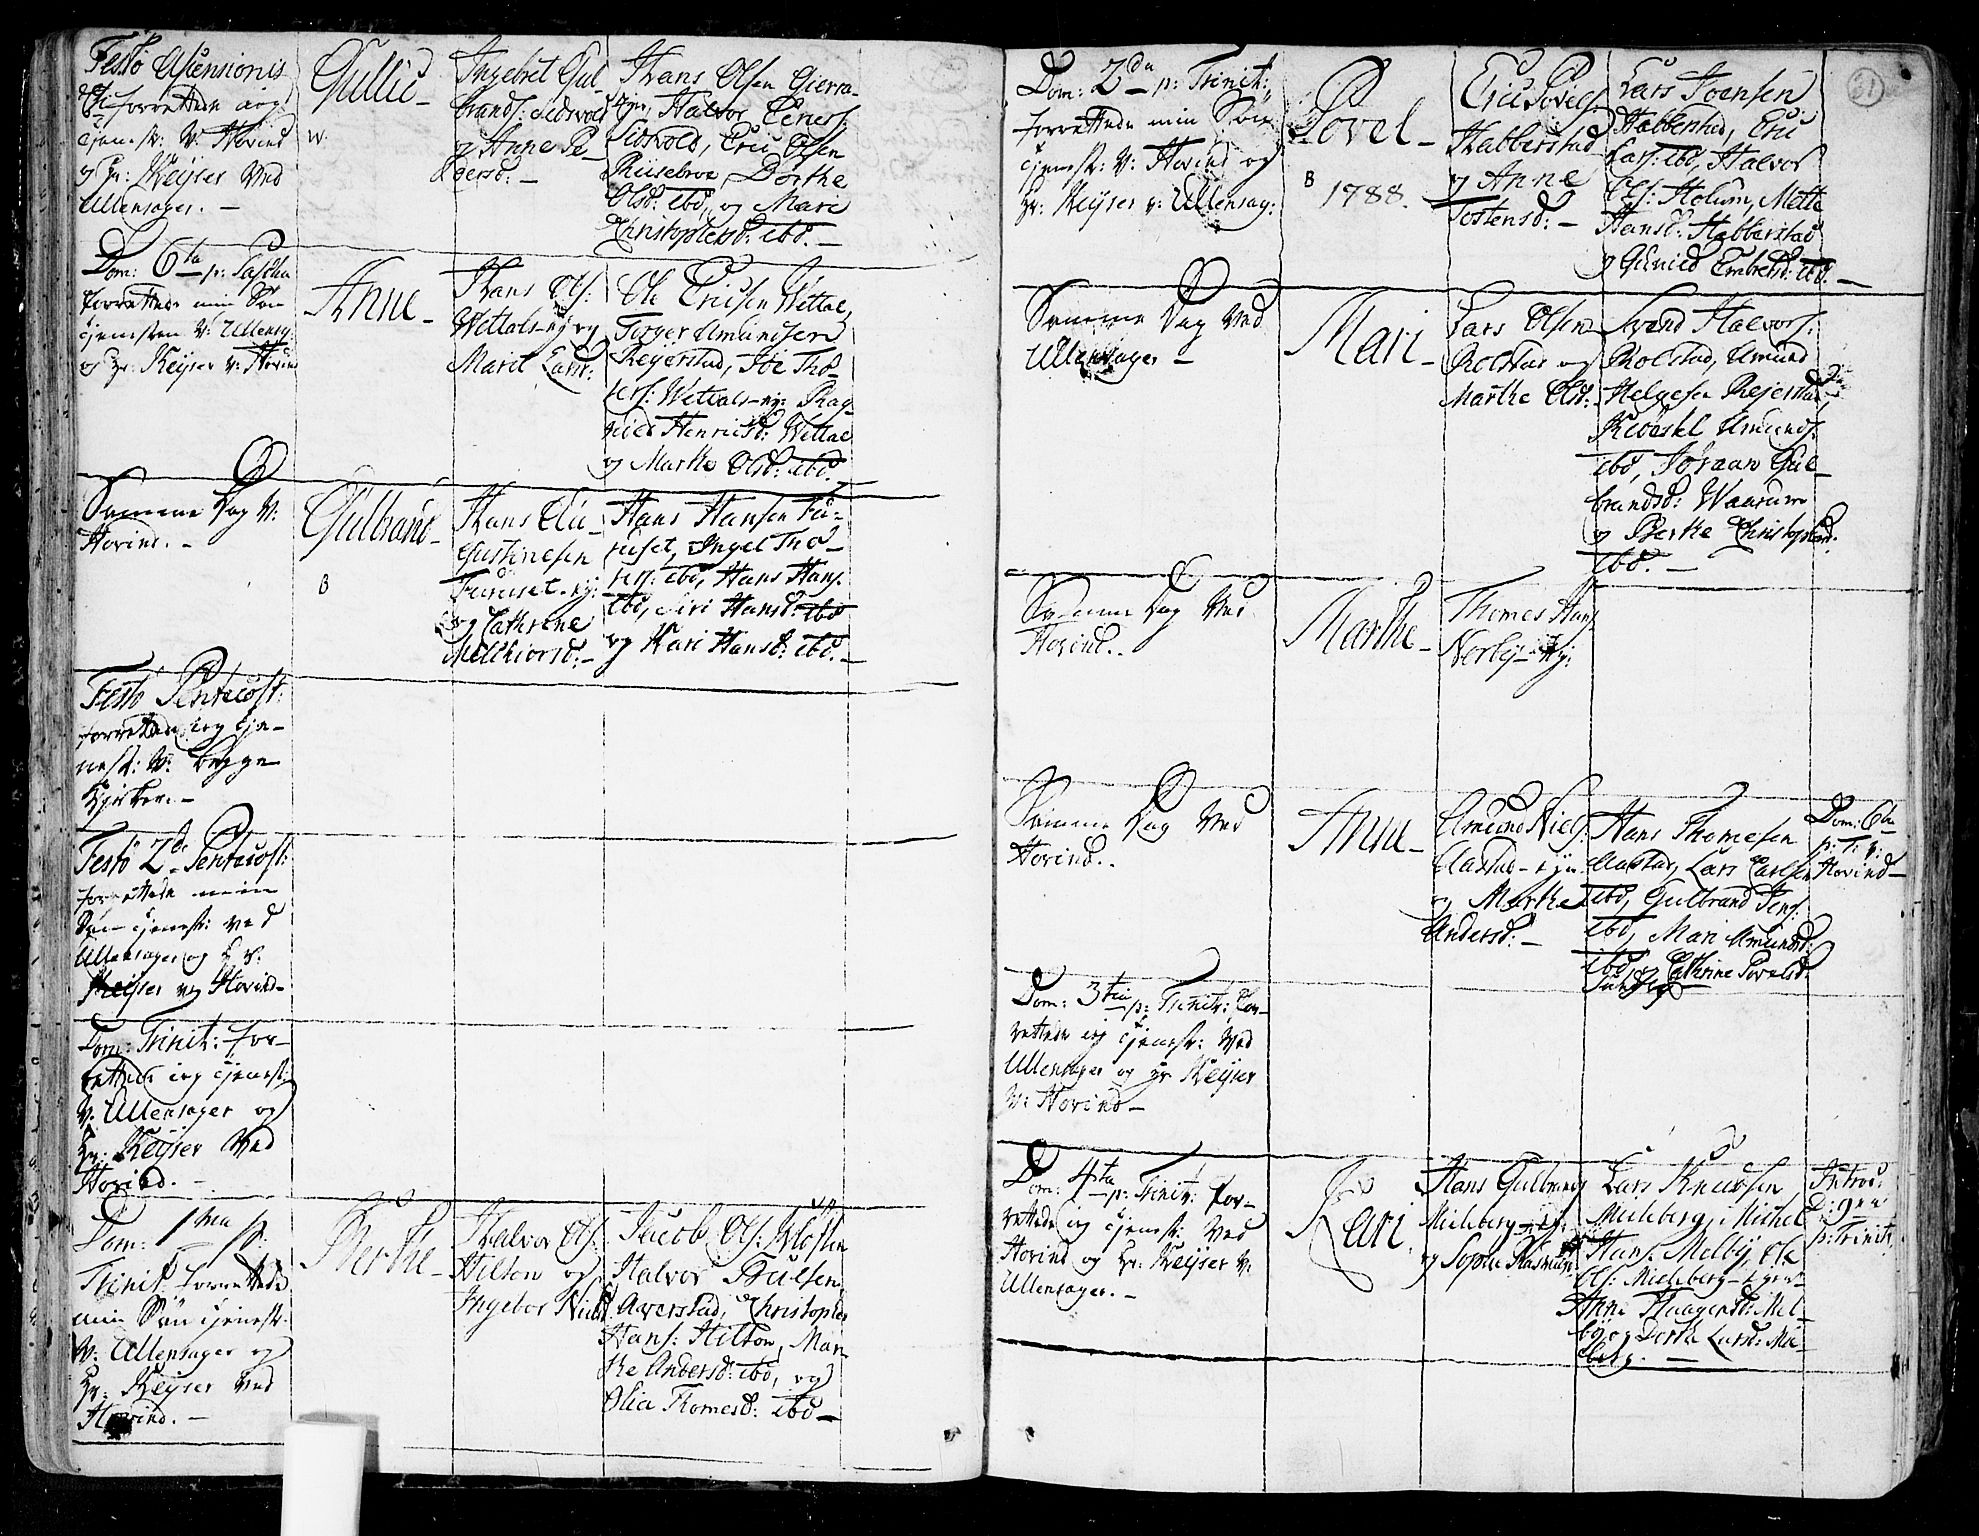 Festo Ascensionis
forrettede jeg
tjenest: v: Hovind
og Hr: Keijser ved
Ullensager. -
Gullic -
W.
Ingebret Gul-
brands: Sidsvold
og Anne Pe-
dersd: -
Hans Olsen Gierra-
Halvor Eriks:
Sidsvold, Eric Olsen
Riisebroe, Dorthe
Olsd: ibd, og Mari
Christophersd: ibd. -
Dom: 6ta p: Pascha
forrettede min Søn
tjenesten v: Ullensag:
og Hr: Keijser v: Hovind
Anne -
Hans Ols:
Wettals-ej: og
Marit Larsd:
Ole Ericsen Wettal,
Torger Amundsen
Rejerstad, Joe Tho-
sers: Wettals-ej: Rag-
nild Henricsd: Wettal
og Marthe Olsd: ibd.
Samme Dag v:
Hovind. -
Gulbrand -
B
Hans Au-
gustinesen
Furuset-ej:
og Cathrine
Melchiorsd: -
Hans Hansen Fu-
ruset, Ingel Tho-
sers: ibd, Hans Hans:
ibd, Siri Hansd: ibd
og Kari Hansd: ibd. -
Festo Pentecost:
forrettede jeg tje-
nest: v: begge
Kirker. -
Festo 2de Pentecost:
forrettede min
Søn tjenest: ved
Ullensager og Hr:
Keijser v: Hovind -
Dom: Trinit: for-
rettede jeg tjenest:
v: Ullensager og
Hr: Keijser ved
Hovind. -
Dom: 1ma p:
Trinit: forrettede
min Søn tjenest:
v: Ullensager og
Hr: Keijser ved
Hovind. -
Berthe -
Halvor Ols:
Hilton og
Ingebor Nielsd:
Jacob Ols: Kløften
Halvor Poulsen
Aaverstad, Christopher
Hans: Hilton, Mar-
the Andersd: ibd, og
Olia Thomesd: ibd -
21
Dom: 2da p: Trinit:
forrettede min Søn
tjenest: v: Hovind og
Hr: Keijser v: Ullensag:
Povel -
B 1788.
Eric Povels:
Habberstad
og Anne
Tostensd: -
Lars Joensen
Habberstad, Eric
Lars: ibd, Halvor
Ols: Holum, Mette
Hansd: Habberstad
og Gunild Embretsd: ibd. -
Samme Dag ved
Ullensager -
Mari -
Lars Olsen
Rolstad og
Marthe Olsd:
Svend Halvors:
Rolstad, Amund
Helgesen Rejerstad,
Amunds:
ibd, Joraan Gul-
brandsd: Waarum
og Berthe Christophersd:
ibd. -
Samme Dag ved
Hovind. -
Marthe -
Thomes Hans:
Nerbÿ-ej:
Samme Dag ved
Hovind. -
Anne -
Amund Niels:
Aastad-ejn.
og Marthe
Andersd: -
Hans Thomesen
Aastad, Lars Carlsen
ibd, Gulbrand Jens:
ibd, Mari Amundsd:
ibd, og Cathrine Povelsd:
Dom: 6ta
p: T: v:
Hovind -
Dom: 3tia p: Trinit: for-
rettede jeg tjenest: ved
Ullensager og Hr Keijser
v: Hovind -
Dom: 4ta p: Trinit: for-
rettede jeg tjenest: ved
Hovind og Hr: Keijser v:
Ullensager. -
Kari
Hans Gulbrands:
Mieleberg-ej:
og Sophie Rasmusd:
Lars Knudsen
Mieleberg, Michel
Hans: Melbÿ, Ole
Ols: Mieleberg-ejn
Anne Haagensd: Mel-
bÿ og Dorthe Larsd: Mie-
leberg. -
Introd:
D: 9na
p: Trinit: